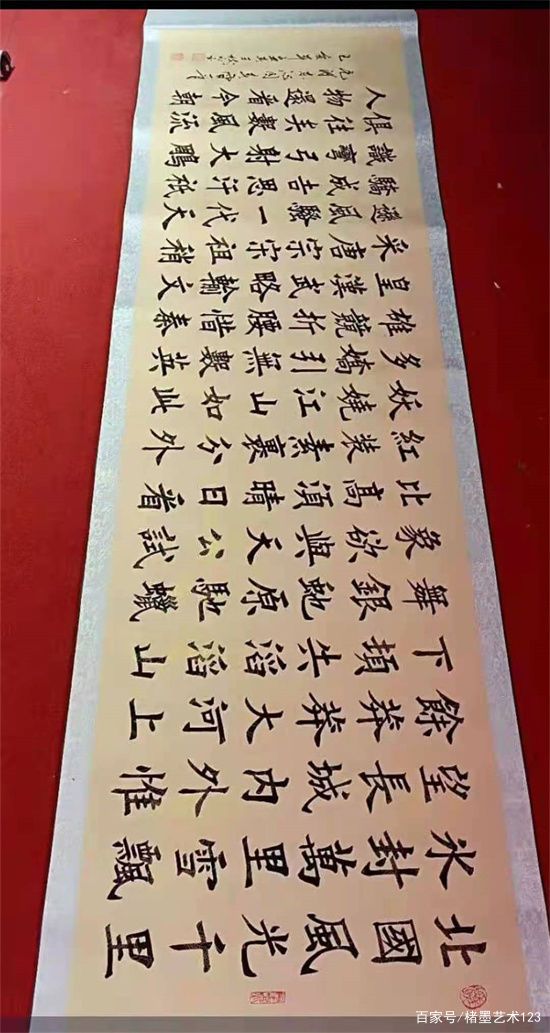 北國風光千里
冰封萬里雪飄
望長城內外惟
餘莽莽大河上
下頓失滔滔山
舞銀蛇原馳蠟
象欲與天公試
比高須晴日看
紅裝素裹分外
妖嬈江山如此
多嬌引無數英
雄競折腰惜秦
皇漢武略輸文
采唐宗宋祖稍
遜風騷一代天
驕成吉思汗祇
識彎弓射大鵰
俱往矣數風流
人物還看今朝
沁園春雪
百家号/楮墨艺术123